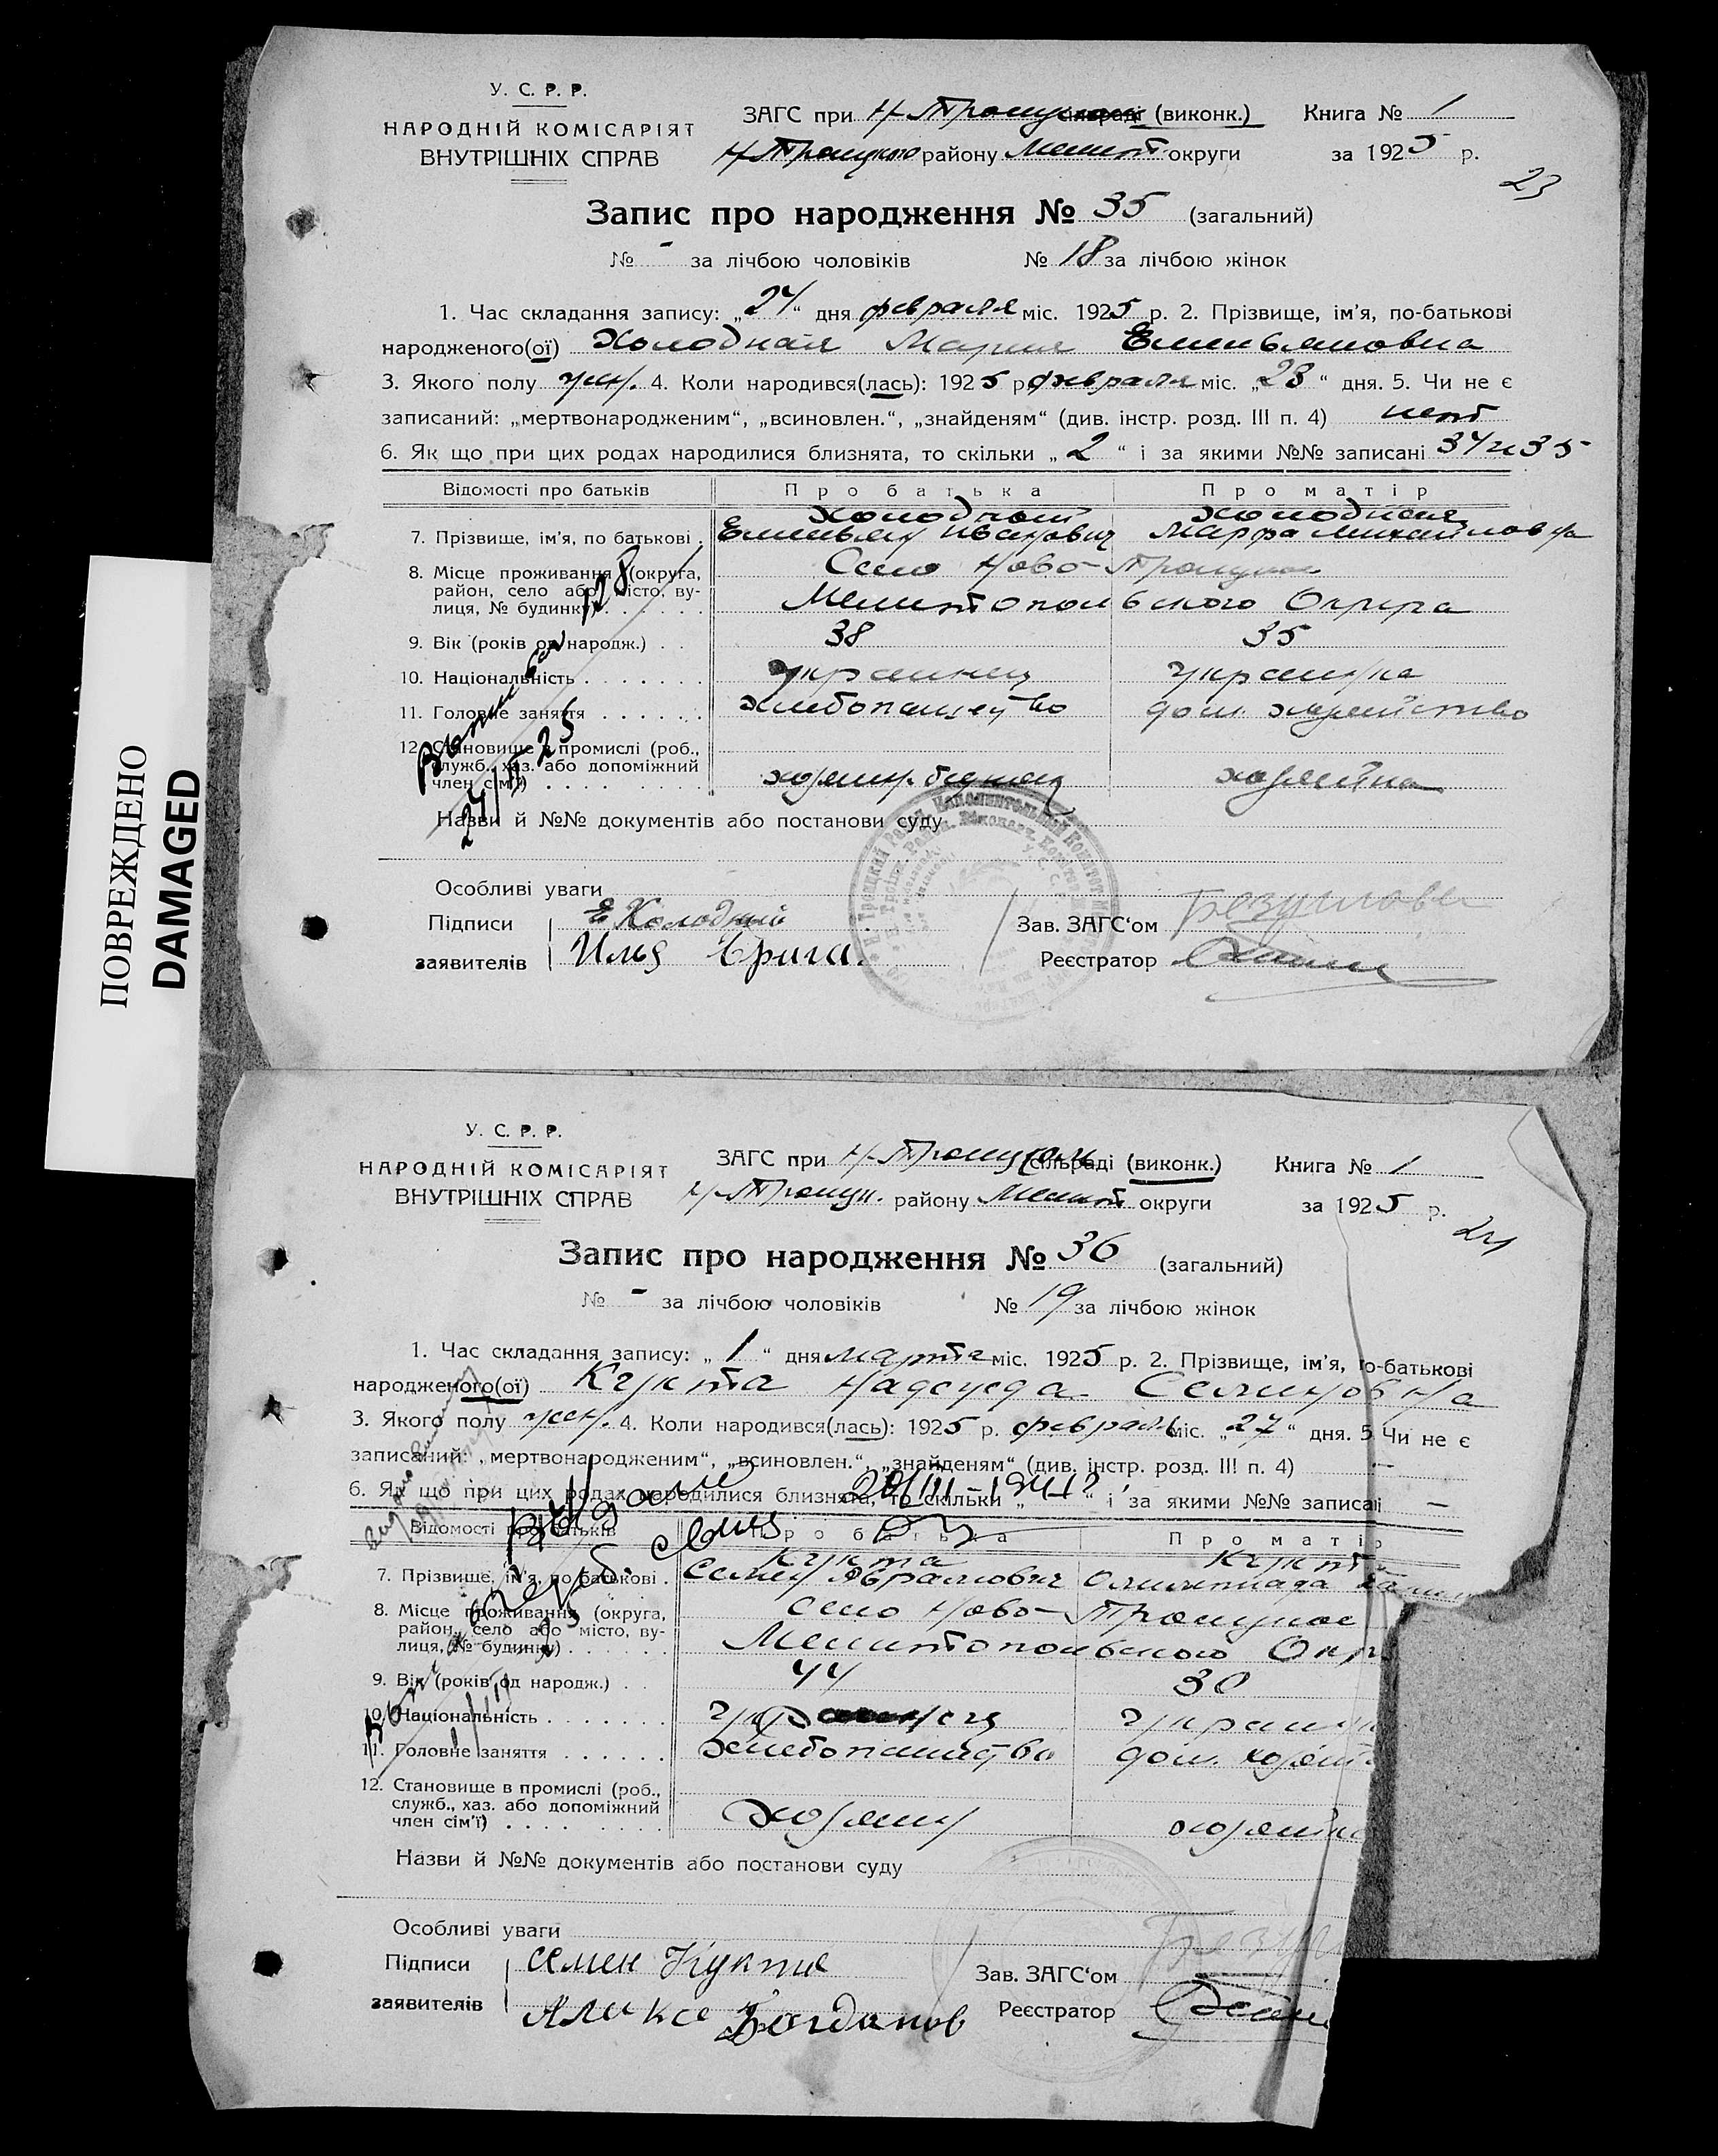 ПОВРЕЖДЕНО
DAMAGED
У. С. Р. Р.
НАРОДНІЙ КОМІСАРІЯТ
ВНУТРІШНІХ СПРАВ
ЗАГС при Н-Троицком (виконк.) Книга № 1
Н-Троицкого району Мелит. округи за 1925 р.
23
Запис про народження № 35 (загальний)
№ - за лічбою чоловіків № 18 за лічбою жінок
1. Час складання запису: „24“ дня февраля міс. 1925 р. 2. Прізвище, ім’я, по-батькові
народженого(ої) Холодная Мария Емельяновна
3. Якого полу жен. 4. Коли народився(лась): 1925 р. февраля міс. „23“ дня. 5. Чи не є
записаний: „мертвонародженим“, „всиновлен.“, „знайденям“ (див. інстр. розд. III п. 4) нет
6. Як що при цих родах народилися близнята, то скільки „2“ і за якими №№ записані 34 и 35
Відомості про батьків Про батька Про матір
Холодный Холодная
7. Прізвище, ім’я, по батькові . Емельян Иванович Марфа Михайловна
8. Місце проживання (округа, Село Ново-Троицкое
район, село або місто, ву-
лиця, № будинку) . . . . . . Мелитопольского Округа
9. Вік (років од народж.) . . 38 35
10. Національність . . . . . . . украинец украинка
11. Головне заняття . . . . . . хлебопашество дом. хозяйство
12. Становище в промислі (роб.,
служб., хаз. або допоміжний
член сім’ї) . . . . . . . . хозяин хозяйка
Назви й №№ документів або постанови суду
Особливі уваги
Підписи Е Холодный Зав. ЗАГС‘ом
заявителів Илья Реєстратор
У. С. Р. Р.
НАРОДНІЙ КОМІСАРІЯТ
ВНУТРІШНІХ СПРАВ
ЗАГС при Н-Троицком сільраді (виконк.) Книга № 1
Н-Троицк. району Мелит. округи за 1925 р.
24
Запис про народження № 36 (загальний)
№ - за лічбою чоловіків № 19 за лічбою жінок
1. Час складання запису: „1“ дня марта міс. 1925 р. 2. Прізвище, ім’я, по-батькові
народженого(ої) Кукта Надежда Семеновна
3. Якого полу жен. 4. Коли народився(лась): 1925 р. февраля міс. „27“ дня. 5. Чи не є
записаний: „мертвонародженим“, „всиновлен.“, „знайденям“ (див. інстр. розд. III п. 4) —
6. Як що при цих родах народилися близнята, то скільки „ “ і за якими №№ записані —
Відомості про батьків Про батька Про матір
Кукта Кукта
7. Прізвище, ім’я, по батькові . Семен Абрамович Олимпиада
8. Місце проживання (округа, село Ново-Троицкое
район, село або місто, ву-
лиця, № будинку) . . . . . . Мелитопольского Окр
9. Вік (років од народж.) . . 44 30
10. Національність . . . . . . . украинец украин
11. Головне заняття . . . . . . хлебопашество дом. хозяйст
12. Становище в промислі (роб.,
служб., хаз. або допоміжний
член сім’ї) . . . . . . . . хозяин хозяйка
Назви й №№ документів або постанови суду
Особливі уваги
Підписи Семен Кукта Зав. ЗАГС‘ом
заявителів Алексе Богданов Реєстратор